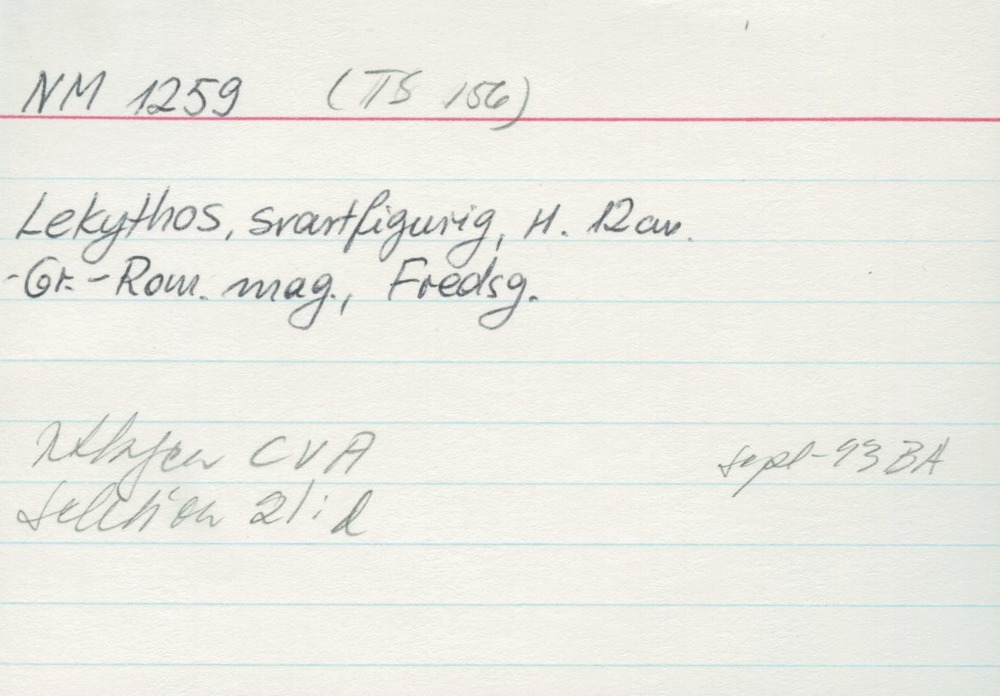 NM 1259 (TS 156)
Lekythos, svartfigurig, H. 12cm.
-Gr.-Rom. mag., Fredsg.
CVA
sept-93 BA
sektion 21:d